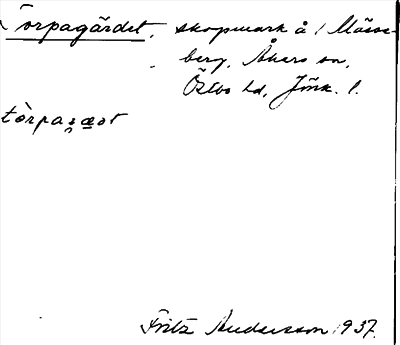 Torpagärdet, skogsmark å 1 Mässe-
berg, Åkers sn,
Östbo hd, Jönk. l.
tòrpaȿæ̱ət
Fritz Andersson 1937.